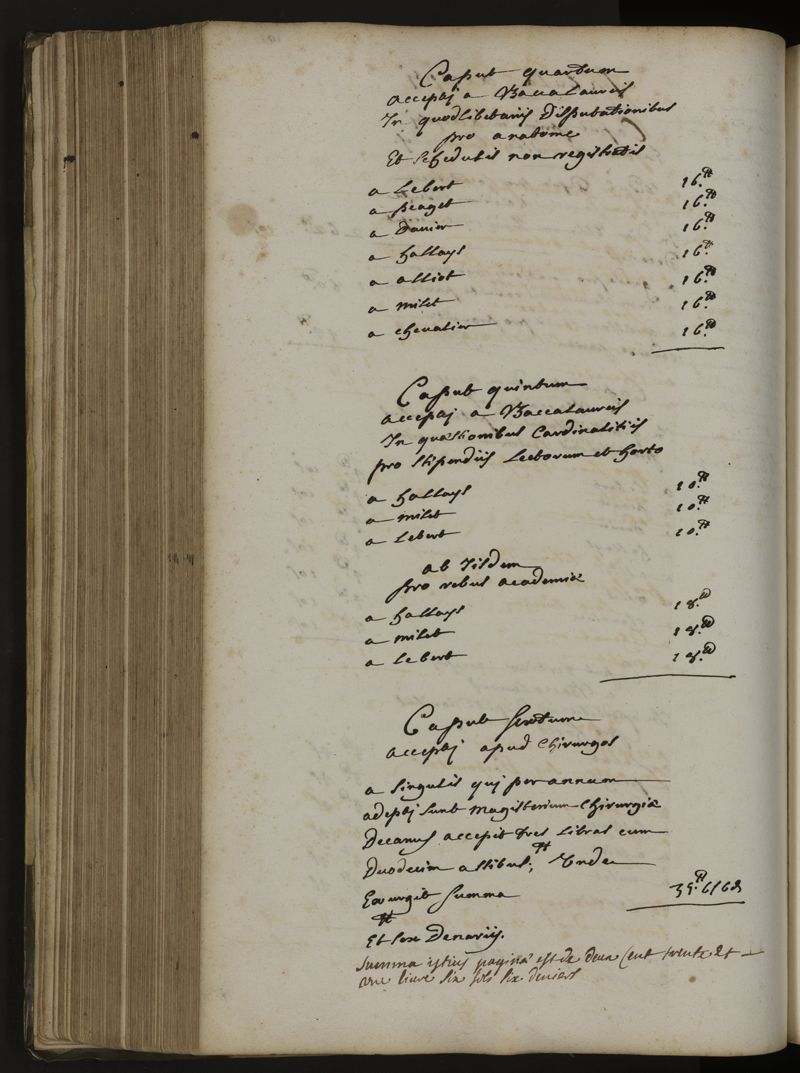 Caput quartum
accepi a Baccalaureis
In quodlibetariis Disputationibus
pro anatome
Et schedulis non registratis
a Lebert 16.tt
a peaget 16.tt
a Danier 16.tt
a hallays 16.tt
a alliot 16.tt
a milet 16.tt
a chevalier 16.tt
Caput quintum
accepj a Baccalaureis
In quæstionibus Cardinalitiis
pro stipendiis Lectorum et horto
a hallays 10.tt
a milet 10.tt
a Lebert 10.tt
ab Iisdem
pro rebus academiæ
a hallays 18.tt
a milet 18.tt
a Lebert 18.tt
Caput sextum
accepj apud Chirurgos
a singulis quj per annum
adeptj sunt magisterium Chirurgiæ
Decanus accepit tres libras cum
Duodecim assibus; Unde
Exurgit summa 35.tt 6s 6d
Et sex Denariis.
Summa istius paginæ est de deux Cent trente et
une livre six sols six deniers